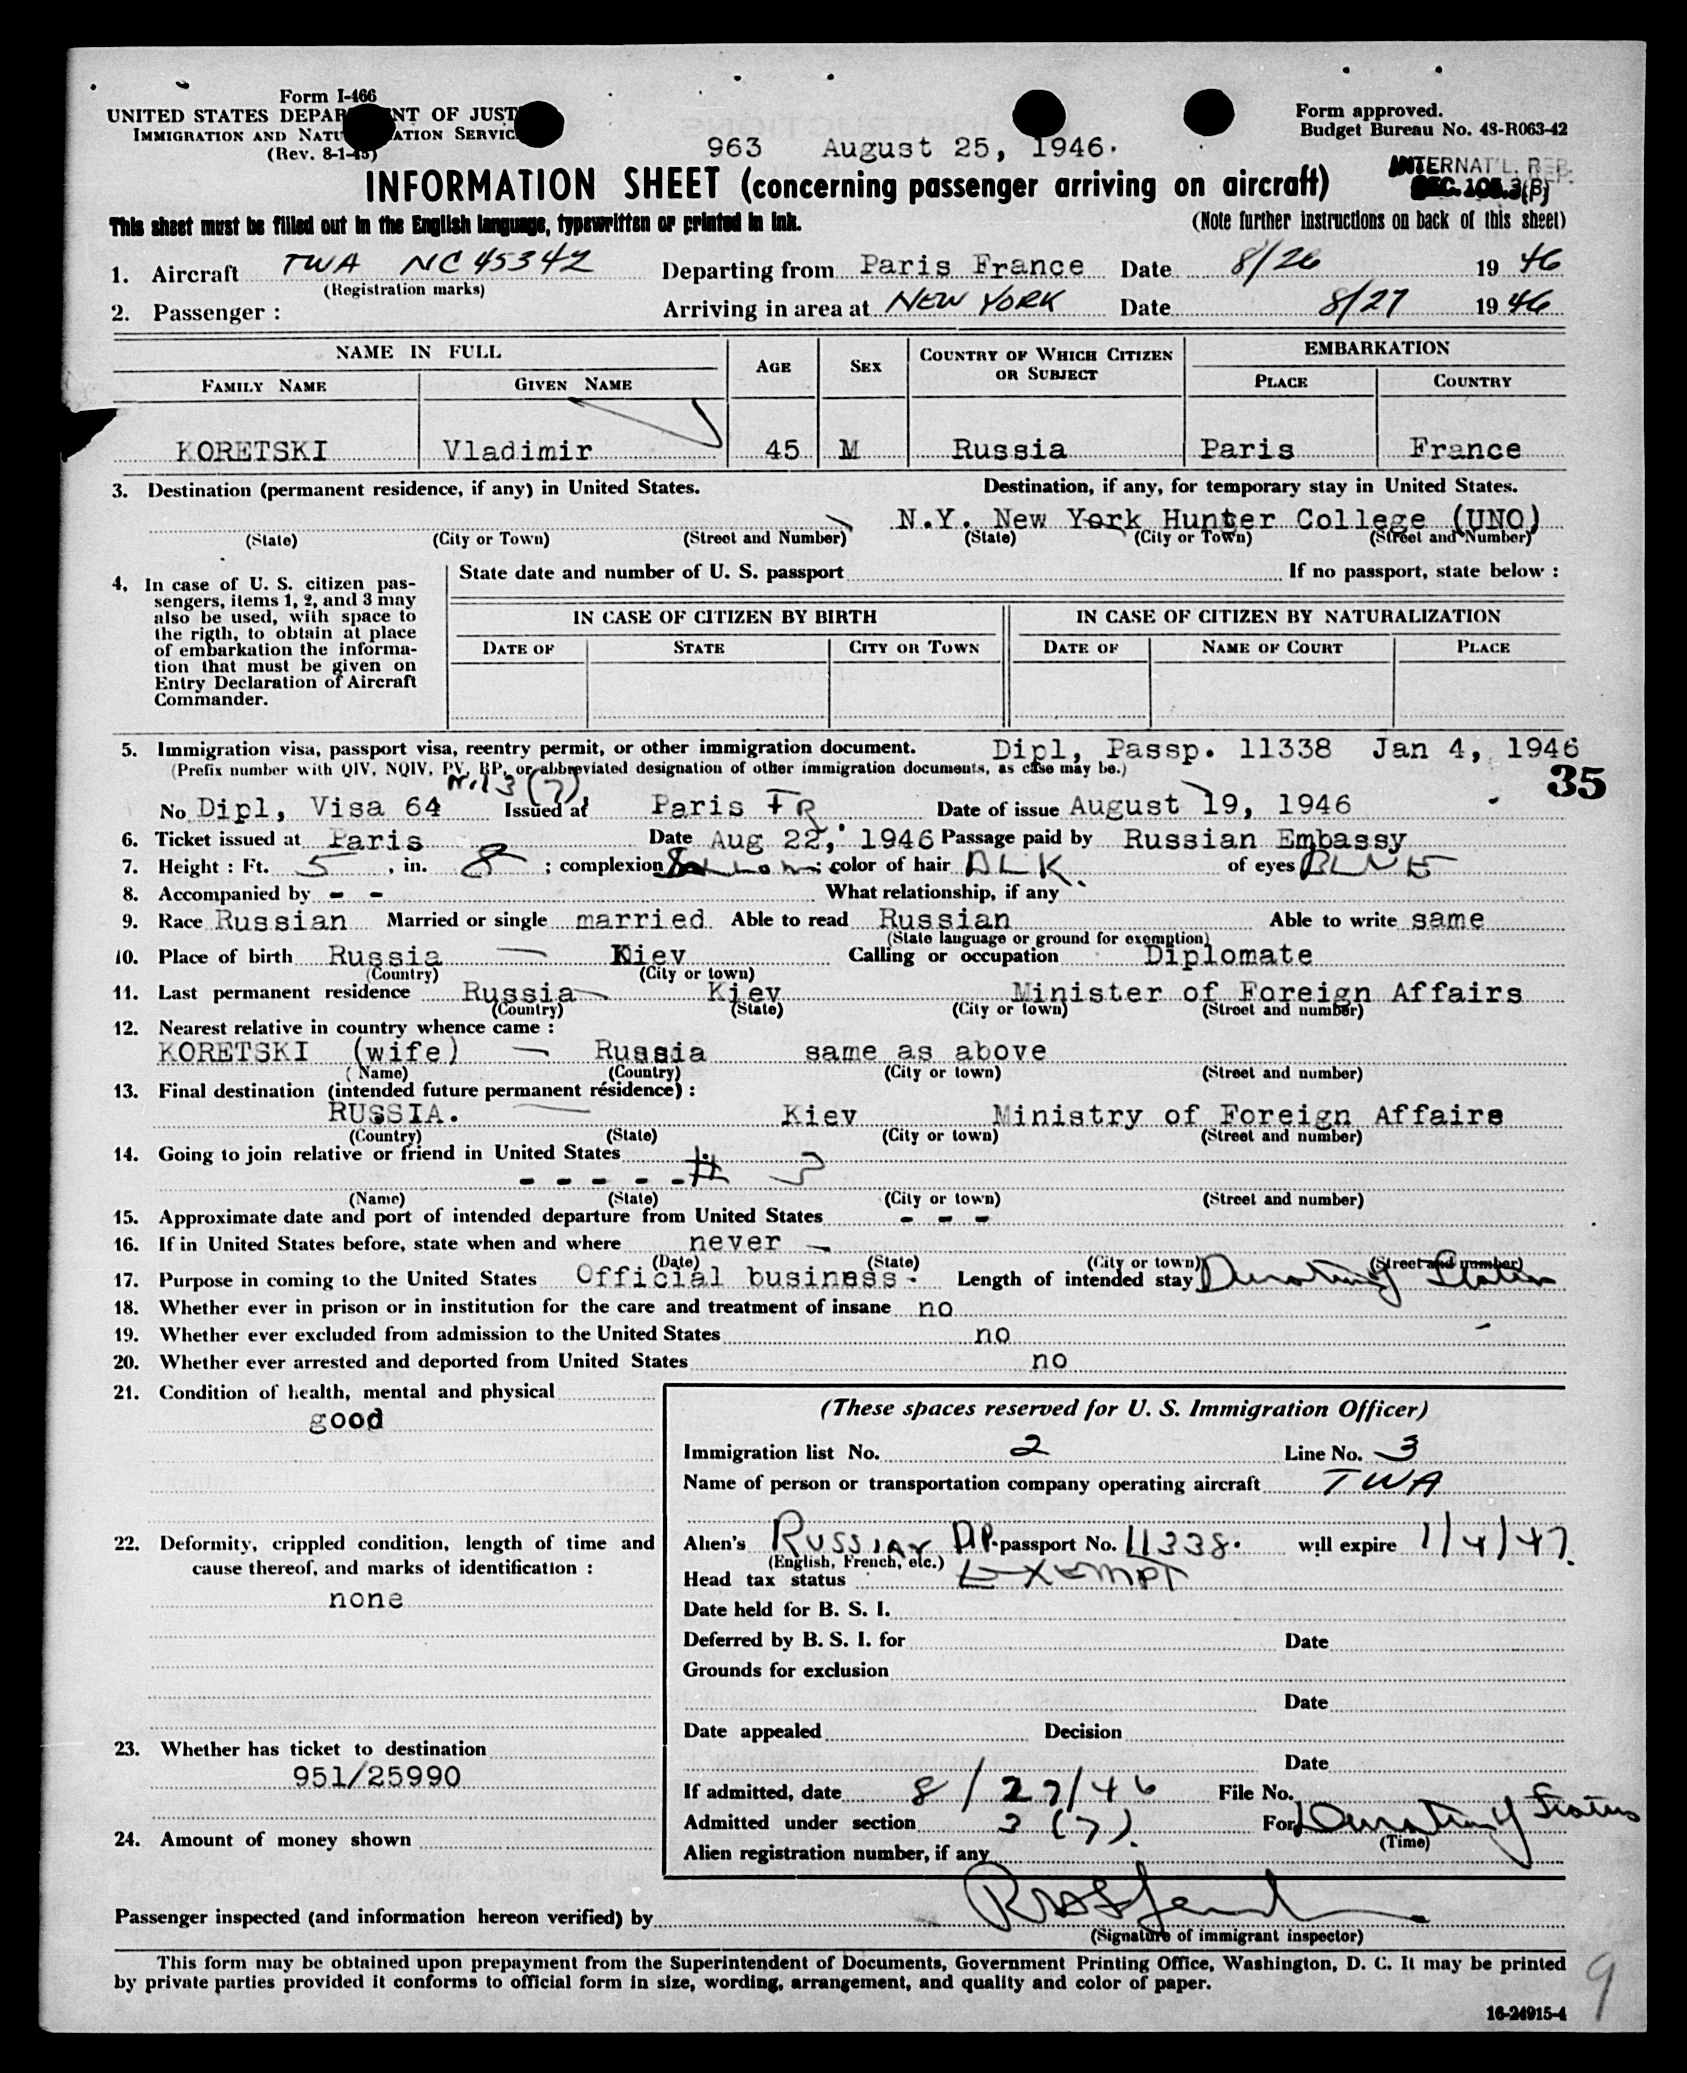 Form I-466
UNITED STATES DEPAR NT OF JUST
IMMIGRATION AND NATU ATION SERVIC
(Rev. 8-1-45)
Form approved.
Budget Bureau No. 43-R063-42
963 August 25, 1946.
INTERNAT'L. REB.
SEC. 105.3(B)
INFORMATION SHEET (concerning passenger arriving on aircraft)
This sheet must be filled out in the English language, typewritten or printed in ink.
(Note further instructions on back of this sheet)
1. Aircraft TWA NC 45342 Departing from Paris France Date 8/26 19 46
(Registration marks)
2. Passenger : Arriving in area at NEW YORK Date 8/27 19 46
NAME IN FULL AGE SEX COUNTRY OF WHICH CITIZEN OR SUBJECT EMBARKATION
FAMILY NAME GIVEN NAME PLACE COUNTRY
KORETSKI Vladimir 45 M Russia Paris France
3. Destination (permanent residence, if any) in United States. Destination, if any, for temporary stay in United States.
N.Y. New York Hunter College (UNO)
(State) (City or Town) (Street and Number) (State) (City or Town) (Street and Number)
4. In case of U. S. citizen pas-
sengers, items 1, 2, and 3 may
also be used, with space to
the rigth, to obtain at place
of embarkation the informa-
tion that must be given on
Entry Declaration of Aircraft
Commander.
State date and number of U. S. passport If no passport, state below :
IN CASE OF CITIZEN BY BIRTH IN CASE OF CITIZEN BY NATURALIZATION
DATE OF STATE CITY OR TOWN DATE OF NAME OF COURT PLACE
5. Immigration visa, passport visa, reentry permit, or other immigration document. Dipl, Passp. 11338 Jan 4, 1946
(Prefix number with QIV, NQIV, PV, RP, or abbreviated designation of other immigration documents, as case may be.)
35
3 (7)
No Dipl, Visa 64 Issued at Paris FR. Date of issue August 19, 1946
6. Ticket issued at Paris Date Aug 22, 1946 Passage paid by Russian Embassy
7. Height : Ft. 5 , in. 8 ; complexion Sallow ; color of hair BLK. of eyes BLUE
8. Accompanied by - - What relationship, if any
9. Race Russian Married or single married Able to read Russian Able to write same
(State language or ground for exemption)
10. Place of birth Russia Kiev Calling or occupation Diplomate
(Country) (City or town)
11. Last permanent residence Russia Kiev Minister of Foreign Affairs
(Country) (State) (City or town) (Street and number)
12. Nearest relative in country whence came :
KORETSKI (wife) Russia same as above
(Name) (Country) (City or town) (Street and number)
13. Final destination (intended future permanent résidence) :
RUSSIA. Kiev Ministry of Foreign Affairs
(Country) (State) (City or town) (Street and number)
14. Going to join relative or friend in United States
- - - - -
(Name) (State) (City or town) (Street and number)
15. Approximate date and port of intended departure from United States - - -
16. If in United States before, state when and where never
(Date) (State) (City or town) (Street and number)
17. Purpose in coming to the United States Official business. Length of intended stay Duration of Status
18. Whether ever in prison or in institution for the care and treatment of insane no
19. Whether ever excluded from admission to the United States no
20. Whether ever arrested and deported from United States no
21. Condition of health, mental and physical
good
22. Deformity, crippled condition, length of time and
cause thereof, and marks of identification :
none
23. Whether has ticket to destination
951/25990
24. Amount of money shown
(These spaces reserved for U. S. Immigration Officer)
Immigration list No. 2 Line No. 3
Name of person or transportation company operating aircraft TWA
Alien's Russian DP. passport No. 11338. will expire 1/4/47.
(English, French, etc.)
Head tax status EXEMPT
Date held for B. S. I.
Deferred by B. S. I. for Date
Grounds for exclusion
Date
Date appealed Decision
Date
If admitted, date 8/27/46 File No.
Admitted under section 3 (7). For Duration of Status
(Time)
Alien registration number, if any
Passenger inspected (and information hereon verified) by
(Signature of immigrant inspector)
This form may be obtained upon prepayment from the Superintendent of Documents, Government Printing Office, Washington, D. C. It may be printed
by private parties provided it conforms to official form in size, wording, arrangement, and quality and color of paper.
16-24915-4
9